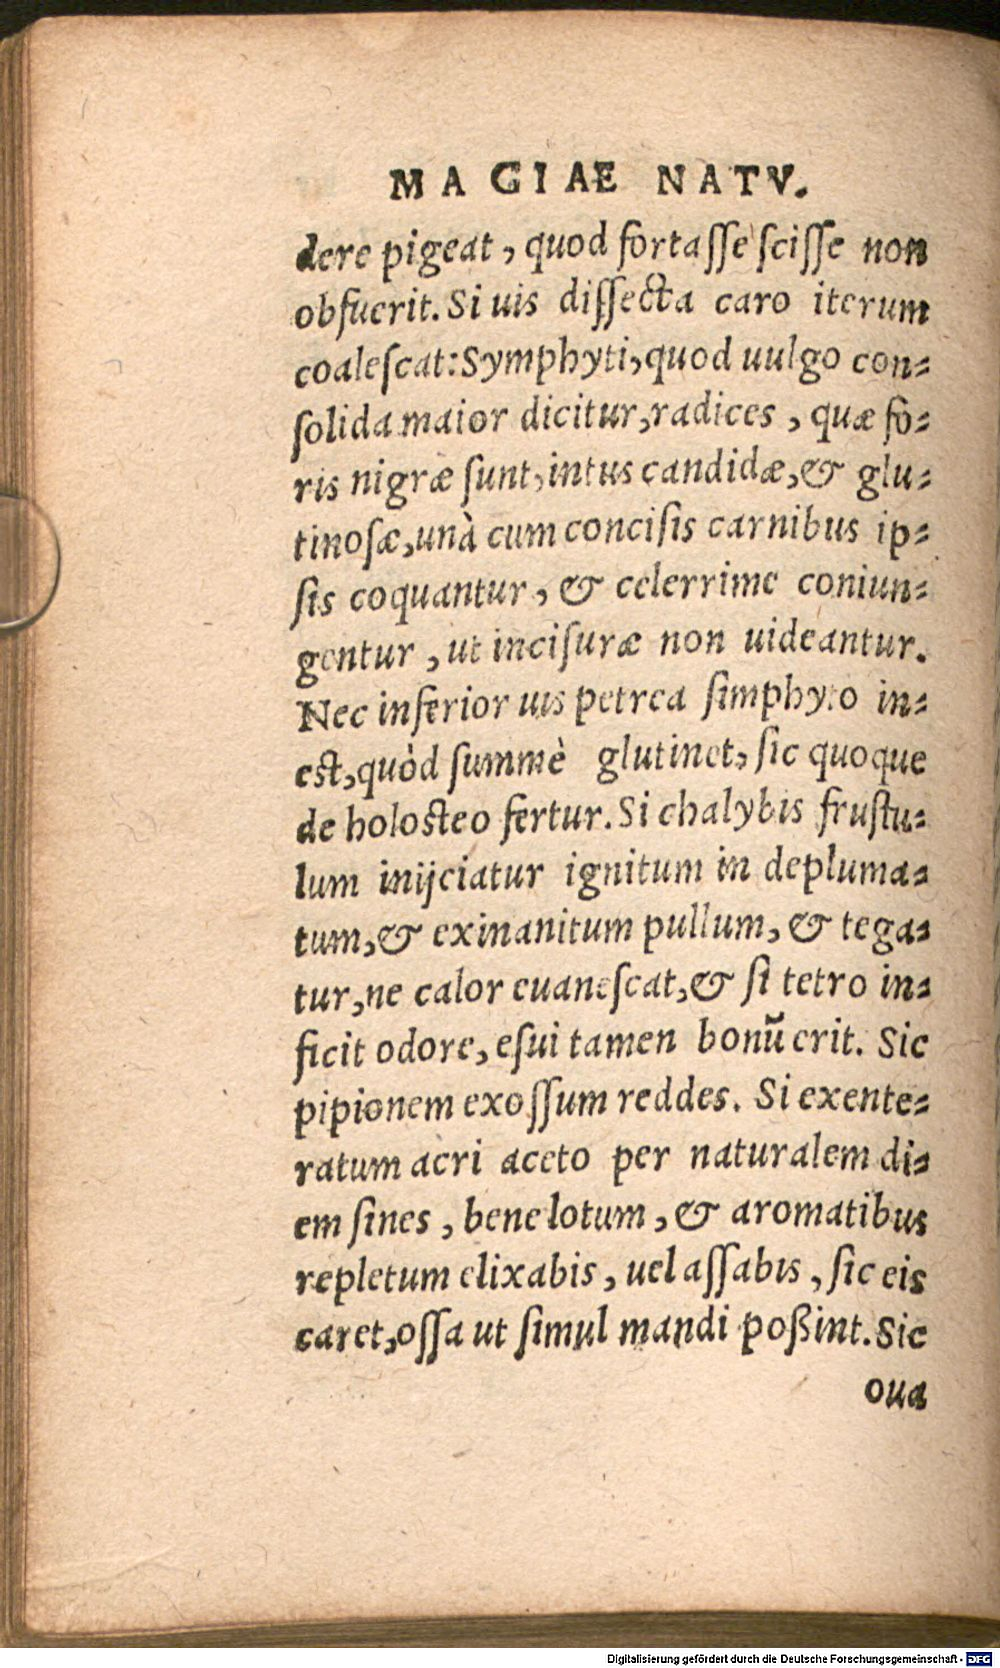 MAGIAE NATV.
dere pigeat, quod fortasse scisse non
obfuerit. Si uis dissecta caro iterum
coalescat: Symphyti, quod uulgo con-
solida maior dicitur, radices, quæ fo-
ris nigræ sunt, intus candidæ, & glu-
tinosæ, unà cum concisis carnibus ip-
sis coquantur, & celerrime coniun-
gentur, ut incisuræ non uideantur.
Nec inferior uis petrea simphyto in-
est, quòd summè glutinet, sic quoque
de holosteo fertur. Si chalybis frustu-
lum inijciatur ignitum in depluma-
tum, & exinanitum pullum, & tega-
tur, ne calor euanescat, & si tetro in-
ficit odore, esui tamen bonũ erit. Sic
pipionem exossum reddes. Si exente-
ratum acri aceto per naturalem di-
em sines, bene lotum, & aromatibus
repletum elixabis, uel assabis, sic eis
caret, ossa ut simul mandi poßint. Sic
oua
Digitalisierung gefördert durch die Deutsche Forschungsgemeinschaft - DFG